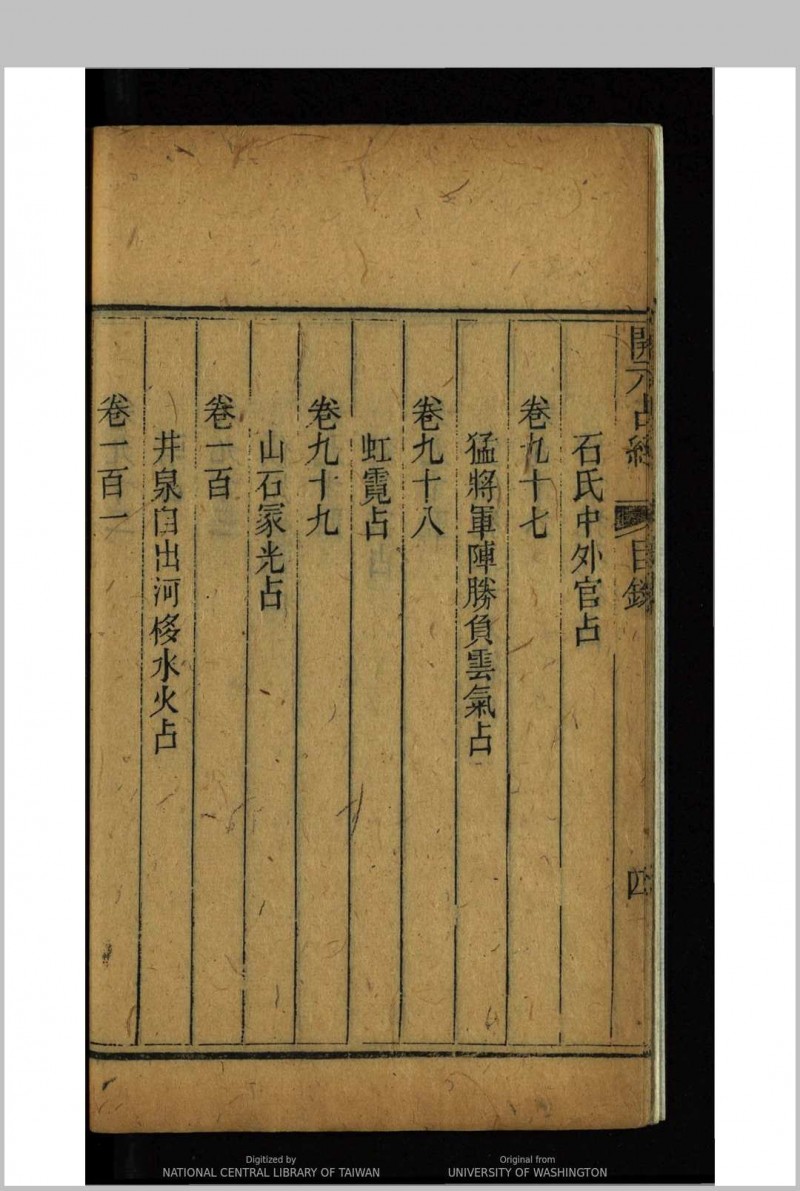 開元占經 目錄 四
石氏中外官占
卷九十七
猛將軍陣勝負雲氣占
卷九十八
虹霓占
卷九十九
山石冢光占
卷一百
井泉自出河移水火占
卷一百一
Digitized by
NATIONAL CENTRAL LIBRARY OF TAIWAN
Original from
UNIVERSITY OF WASHINGTON